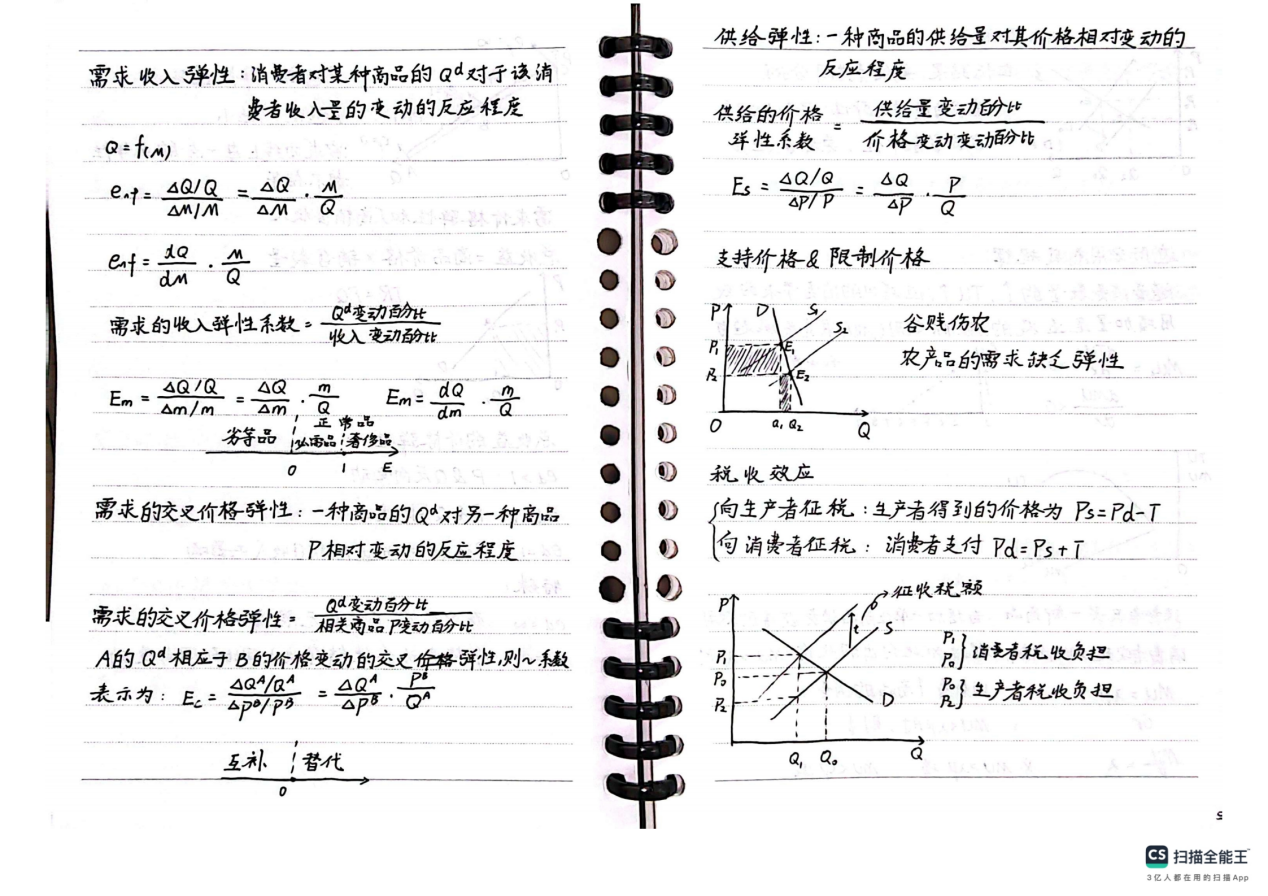 需求收入弹性：消费者对某种商品的Qᵈ对于该消
费者收入量的变动的反应程度
Q=f(M)
eₙf = ΔQ/Q / ΔM/M = ΔQ/ΔM · M/Q
eₙf = dQ/dM · M/Q
需求的收入弹性系数 = Qᵈ变动百分比 / 收入变动百分比
Em = ΔQ/Q / Δm/m = ΔQ/Δm · m/Q Em = dQ/dm · m/Q
正常品
劣等品 必需品 奢侈品
0 1 E
需求的交叉价格弹性：一种商品的Qᵈ对另一种商品
P相对变动的反应程度
需求的交叉价格弹性 = Qᵈ变动百分比 / 相关商品P变动百分比
A的Qᵈ相应于B的价格变动的交叉价格弹性,则~系数
表示为： Ec = ΔQᴬ/Qᴬ / ΔPᴮ/Pᴮ = ΔQᴬ/ΔPᴮ · Pᴮ/Qᴬ
互补 替代
0
供给弹性：一种商品的供给量对其价格相对变动的
反应程度
供给的价格弹性系数 = 供给量变动百分比 / 价格变动变动百分比
Es = ΔQ/Q / ΔP/P = ΔQ/ΔP · P/Q
支持价格&限制价格
P D S₁
S₂
谷贱伤农
P₁ E₁
农产品的需求缺乏弹性
P₂ E₂
O Q₁ Q₂ Q
税收效应
向生产者征税：生产者得到的价格为 Ps=Pd-T
向消费者征税： 消费者支付 Pd=Ps+T
P 征收税额
t S
P₁
P₀ } 消费者税收负担
P₁
P₀
P₀
P₂ } 生产者税收负担
P₂
D
Q₁ Q₀ Q
5
CS 扫描全能王
3亿人都在用的扫描App